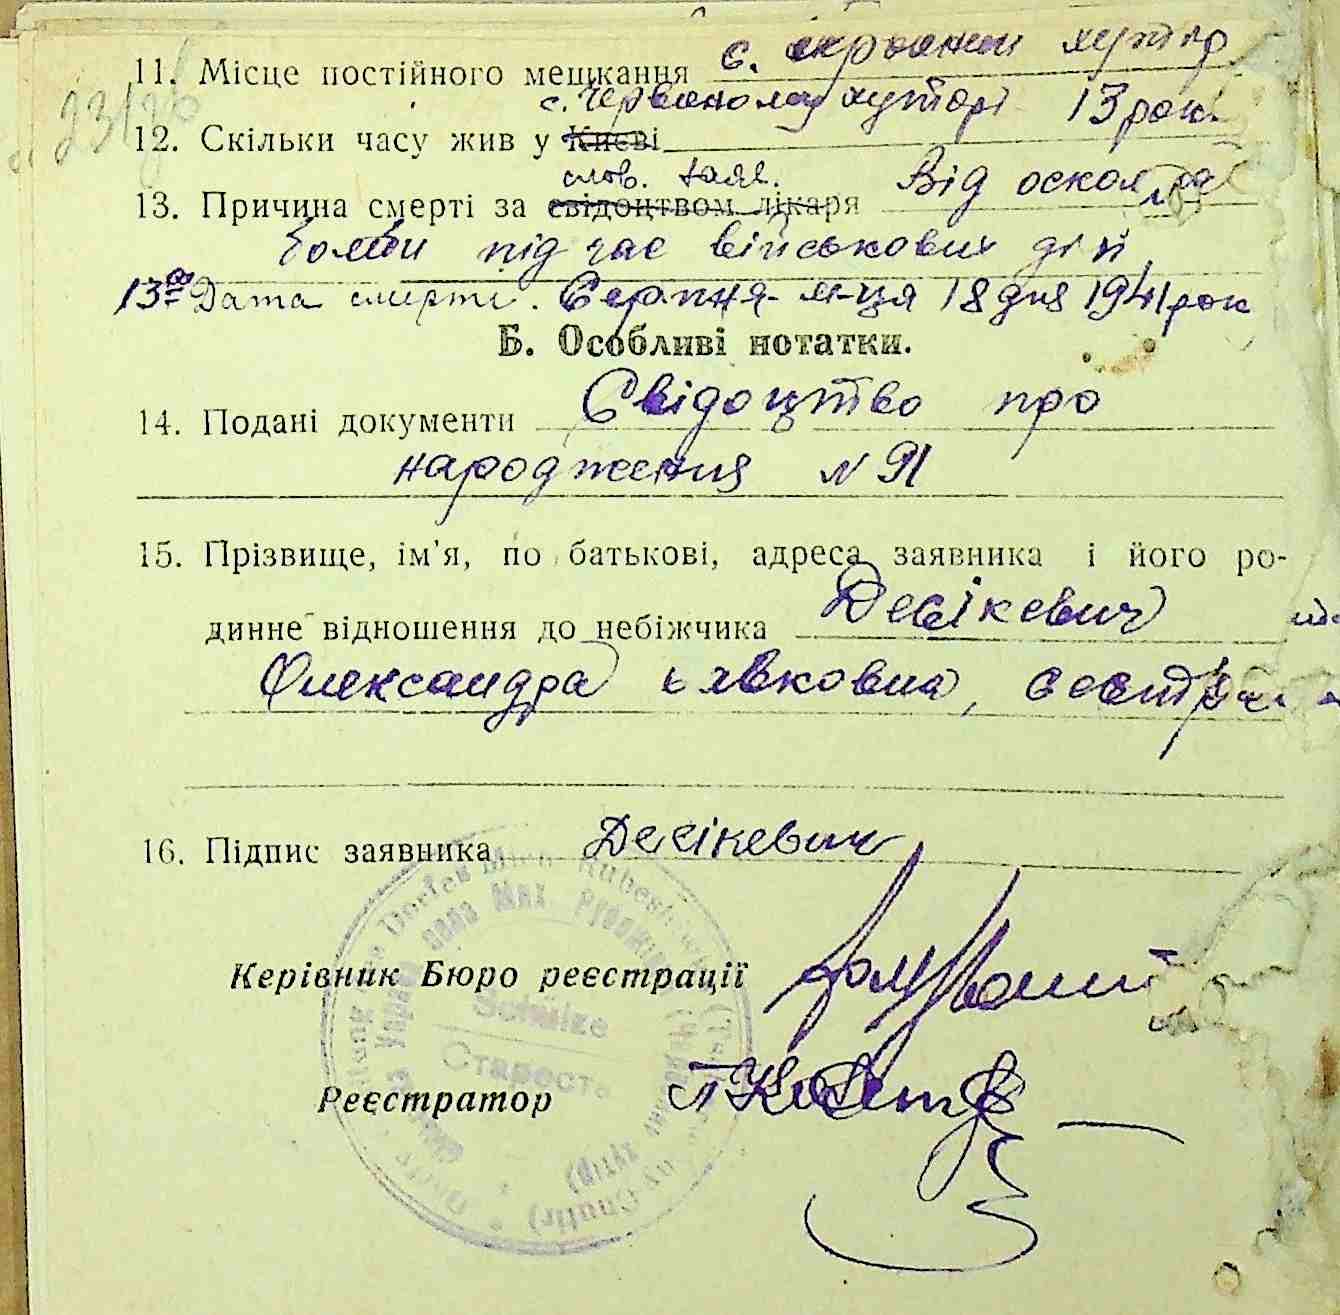 11. Місце постійного мешкання с. хутір
с. Червоному хуторі 13 рок.
12. Скільки часу жив у Києві
слов. заяв. Від осколка
13. Причина смерті за свідоцтвом лікаря
бомби під час військових дій
13а Дата смерті. Серпня м-ця 18 дня 1941 рок
Б. Особливі нотатки.
14. Подані документи Свідоцтво про
народження N 91
15. Прізвище, ім'я, по батькові, адреса заявника і його ро-
динне відношення до небіжчика Десікевич
Олександра Явковна, сестра
16. Підпис заявника Десікевич
Керівник Бюро реєстрації
Реєстратор
Schulze
Староста
23/